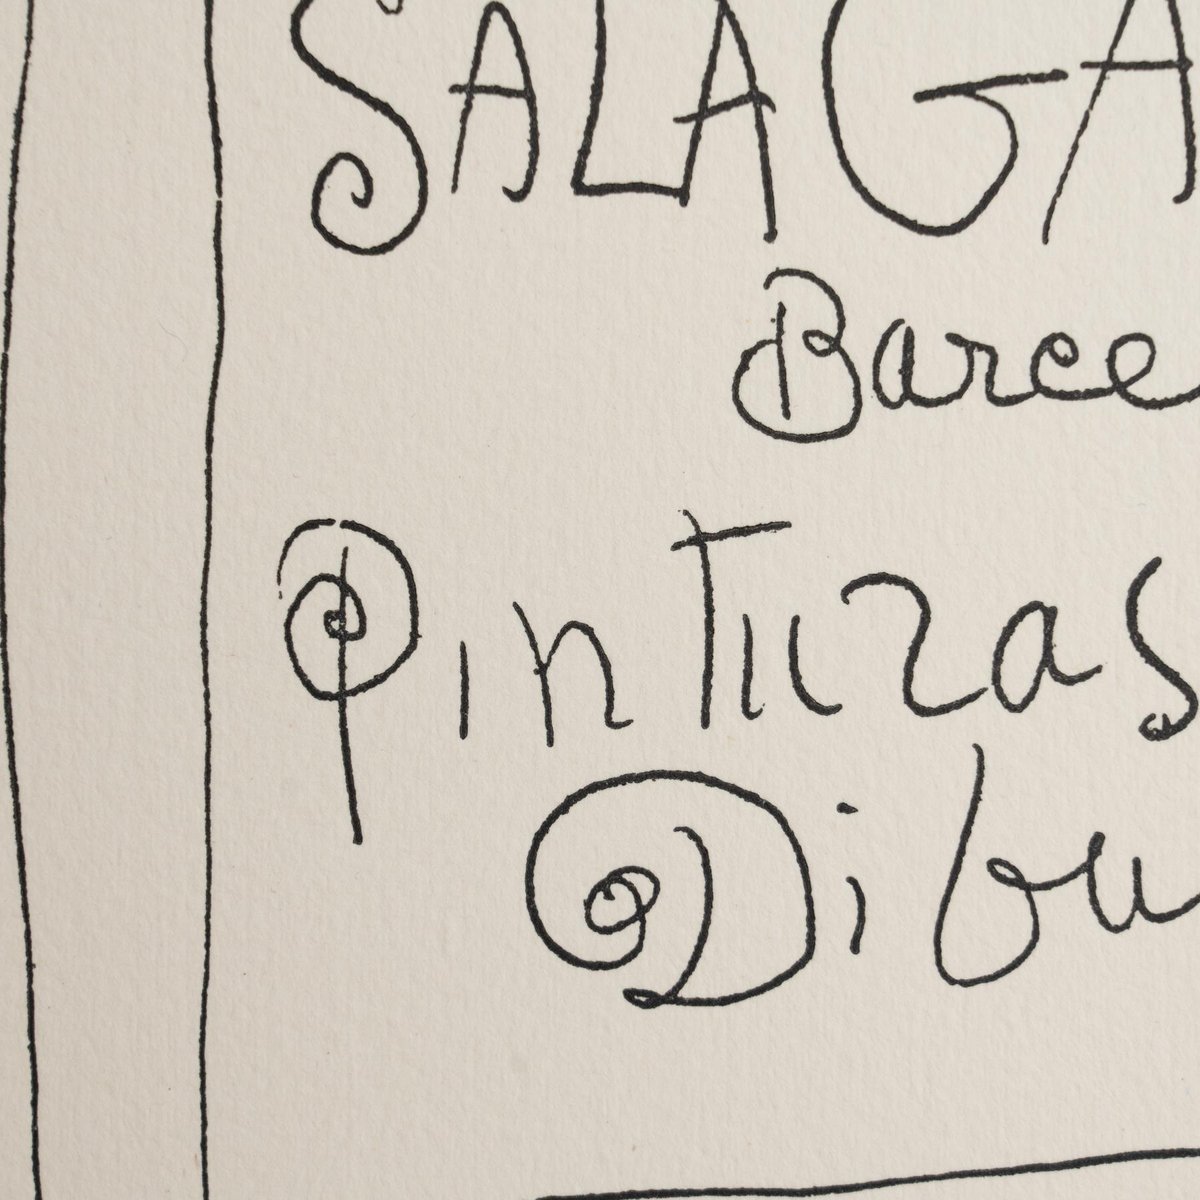 SALA GA
Barce
Pinturas
Dibu